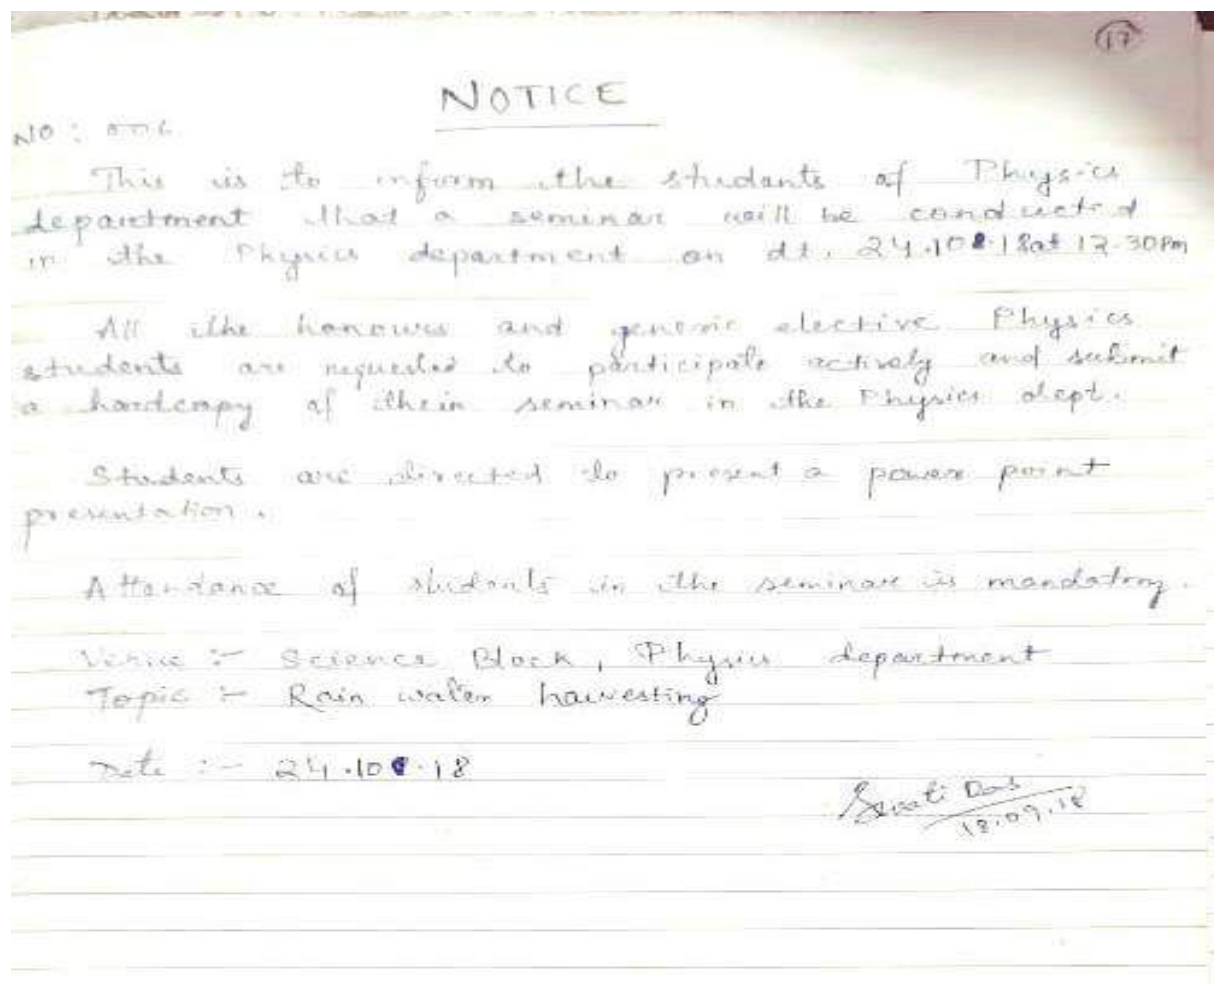 17
NOTICE
NO: 006.
This is to inform the students of Physics
department that a seminar will be conducted
in the Physics department on dt. 24.10.18 at 12.30Pm
All the honours and generic elective Physics
students are requested to participate actively and submit
a hardcopy of their seminar in the Physics dept.
Students are directed to present a power point
presentation.
Attendance of students in the seminar is mandatory.
Venue :- Science Block, Physics department
Topic :- Rain water harvesting
Date :- 24.10.18
Das
18.09.18